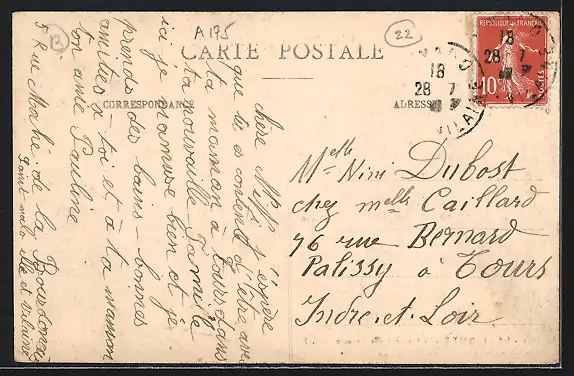 B
A 175
22
CARTE POSTALE
CORRESPONDANCE
ADRESSE
RÉPUBLIQUE FRANÇAISE
10
POSTES
18
28 7
18
28 7
VILAINE
Melle Nini Dubost
chez melle Caillard
76 rue Bernard
Palissy à Tours
Indre-et-Loir
chère Mifi j'espère
que tu es contente d'être avec
ta maman a Tours dans
ta nouvelle famille
ici je m'amuse bien et je
prends des bains - bonnes
amitiés a toi et à ta maman
ton amie Pauline
5 Rue Mahé de la Bourdonnais
Saint malo Ille et vilaine